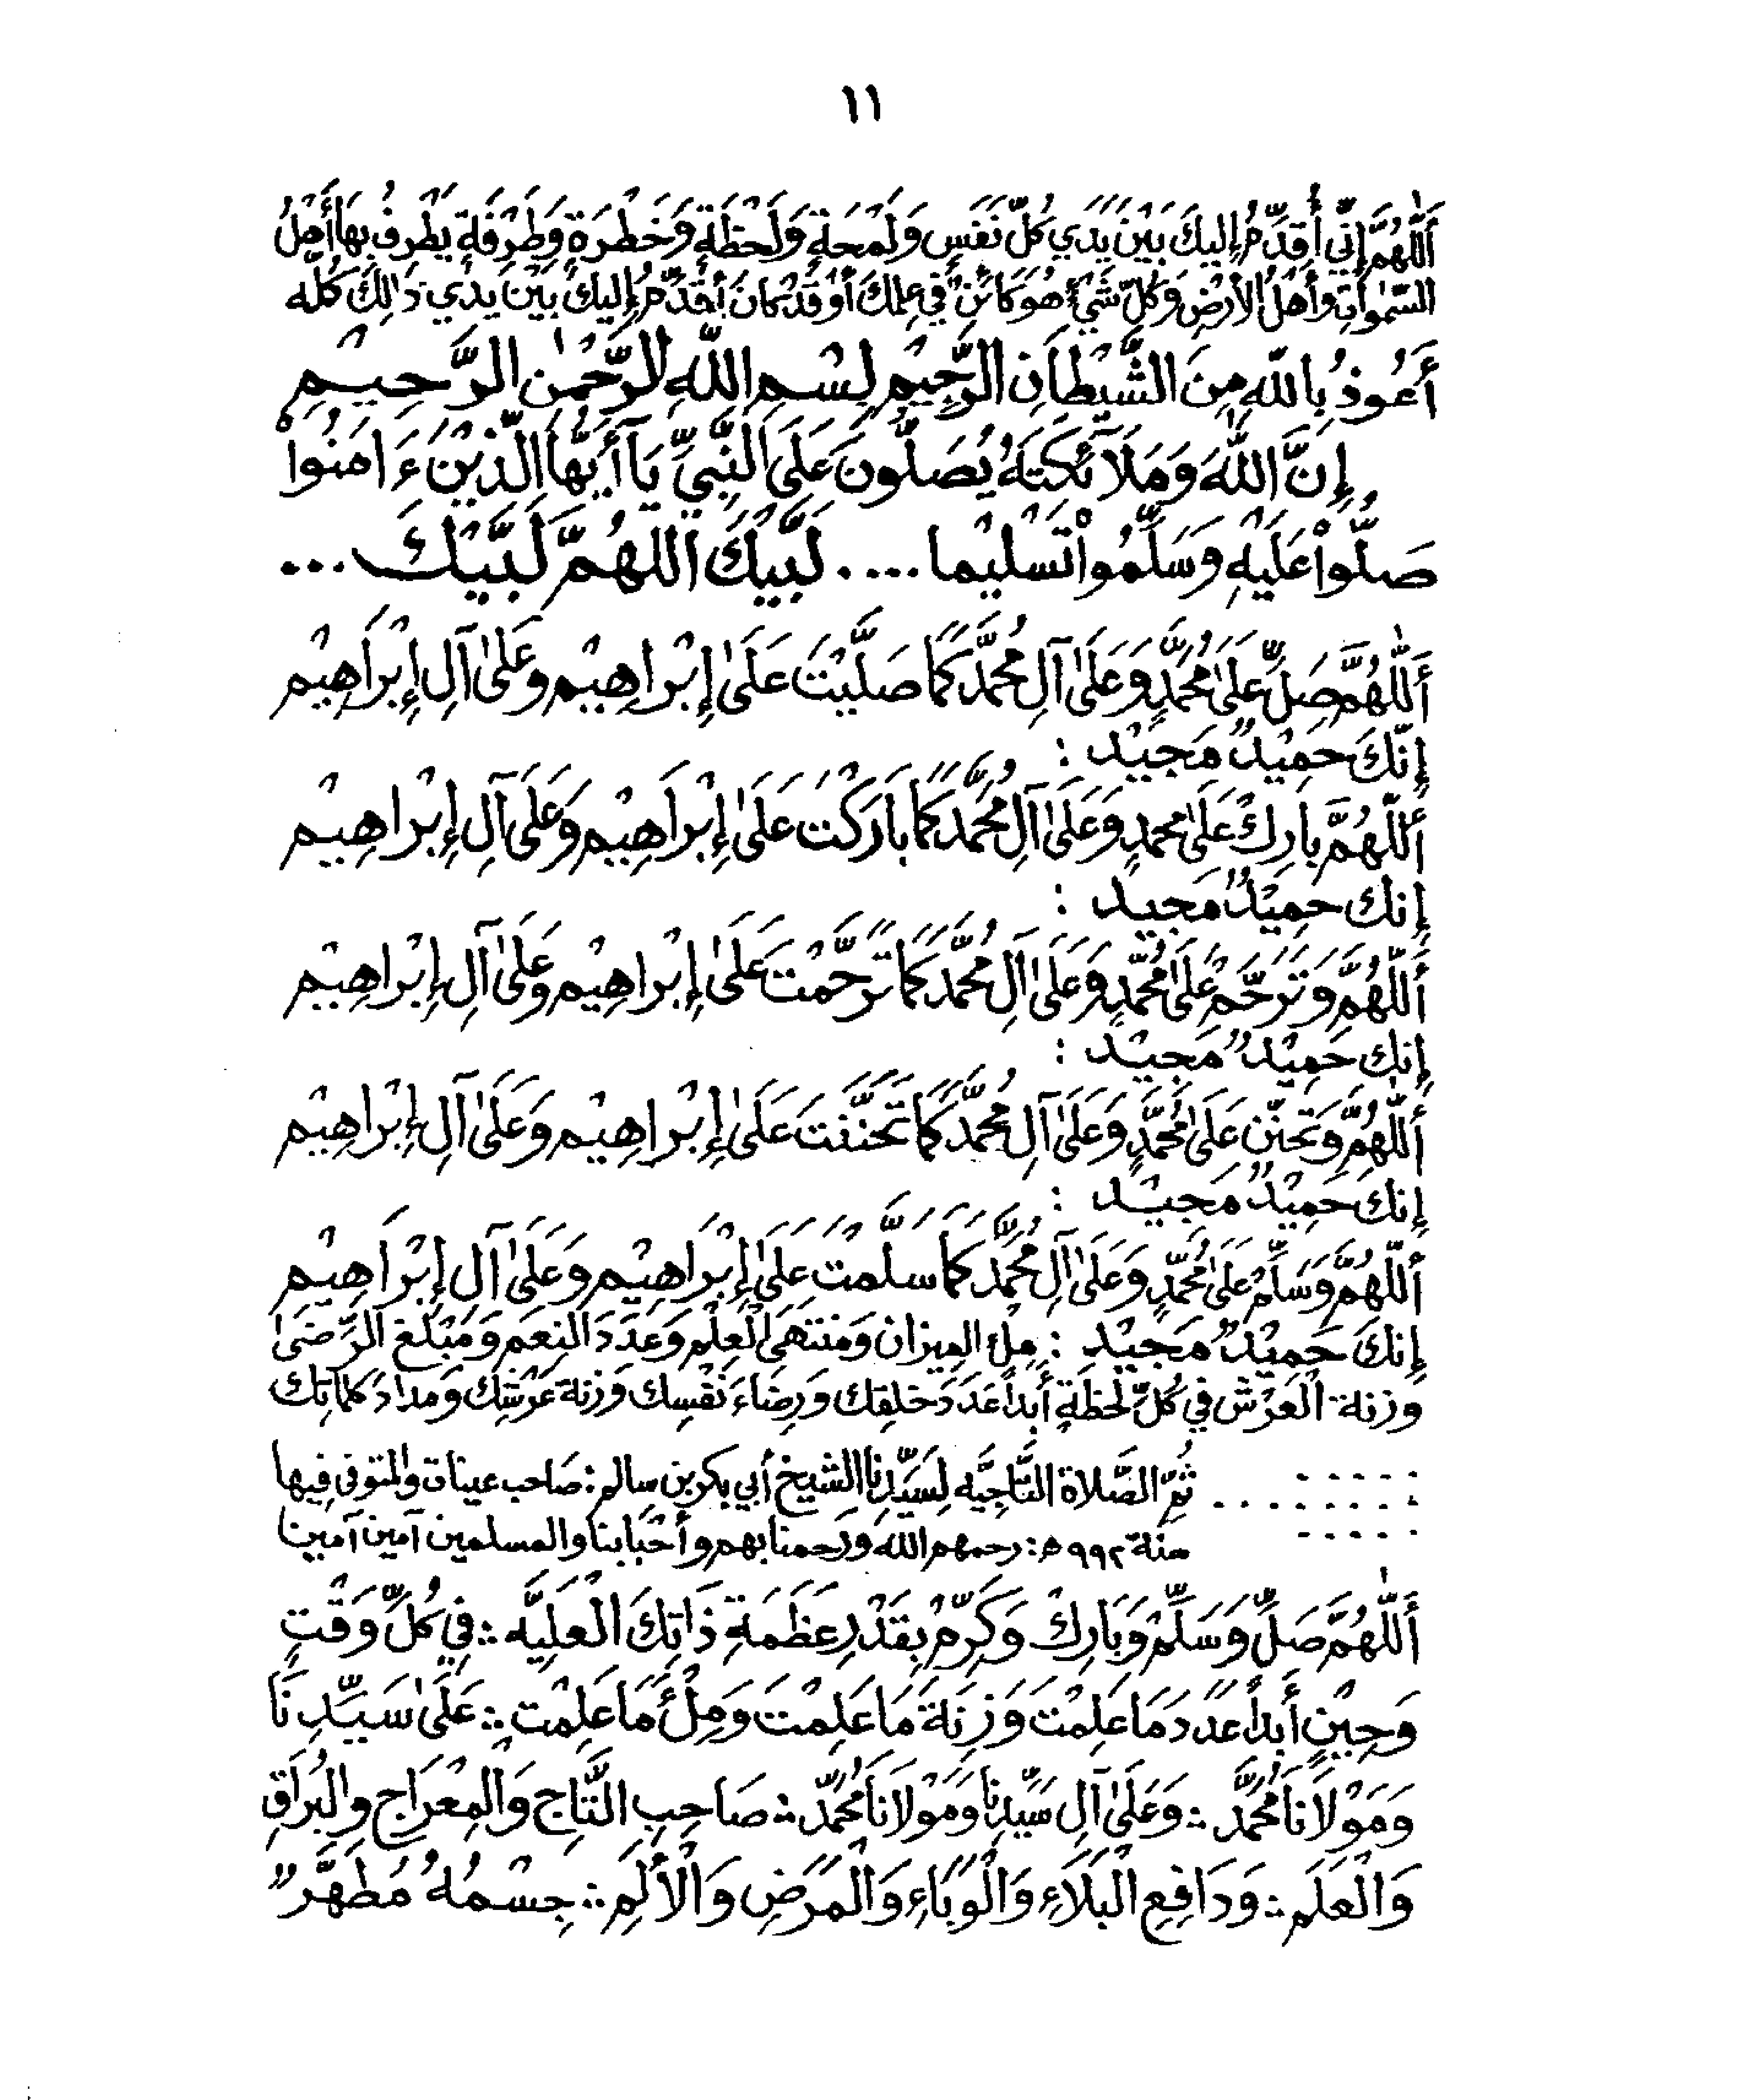 ١١
أَللّٰهُمَّ إِنِّي أُقَدِّمُ إِليكَ بَيْنَ يَدَي كُلِّ نَفَسٍ وَلَمْحَةٍ وَلَحْظَةٍ وَخَطْرَةٍ وَطَرْفَةٍ يَطْرِفُ بِهَا أَهْلُ
السَّمٰوَاتِ وَأَهْلُ الأَرْضِ وَكُلِّ شَيْءٍ هُوَ كَائِنٌ فِي عِلْمِكَ أَوْ قَدْ كَانَ أُقَدِّمُ إِليكَ بَيْنَ يَدَي ذَالِكَ كُلِّه
أَعُوذُ بِاللّٰهِ مِنَ الشَّيْطَانِ الرَّجِيْمِ بِسْمِ اللّٰهِ الرَّحْمٰنِ الرَّحِيْمِ
إِنَّ اللّٰهَ وَمَلَآئِكَتَهُ يُصَلُّونَ عَلَى النَّبِيِّ يَآأَيُّهَا الَّذِيْنَ ءَامَنُواْ
صَلُّواْ عَلَيْهِ وَسَلِّمُواْ تَسْلِيْمَا .... لَبَّيْكَ اللَّهُمَّ لَبَّيْكَ ...
أَللّٰهُمَّ صَلِّ عَلَىٰ مُحَمَّدٍ وَعَلَىٰ آلِ مُحَمَّدٍ كَمَا صَلَّيْتَ عَلَىٰ إِبْرَاهِيْم وَعَلَىٰ آلِ إِبْرَاهِيْم
إِنَّكَ حَمِيْدٌ مَجِيْد :
أَللّٰهُمَّ بَارِكْ عَلَىٰ مُحمدٍ وَعَلَىٰ آلِ مُحَمَّد كَمَا بَارَكْتَ عَلَىٰ إِبْرَاهِيْم وَعَلَىٰ آلِ إِبْرَاهِيْم
إِنك حَمِيْدٌ مَجِيد :
أَللّٰهُمَّ وَتَرَحَّمْ عَلَىٰ مُحَمَّدٍ وَعَلَىٰ آلِ مُحَمَّد كَمَا تَرَحَّمْتَ عَلَىٰ إِبْرَاهِيْم وَعَلَىٰ آلِ إِبْرَاهِيْم
إِنك حَمِيْدٌ مَجِيْد :
أَللّٰهُمَّ وَتَحَنَّنْ عَلَىٰ مُحَمَّدٍ وَعَلَىٰ آلِ مُحَمَّد كَمَا تَحَنَّنْتَ عَلَىٰ إِبْرَاهِيْم وَعَلَىٰ آلِ إِبْرَاهِيْم
إِنكَ حَمِيْدٌ مَجِيْد :
أَللّٰهُمَّ وَسَلِّمْ عَلَىٰ مُحَمَّدٍ وَعَلَىٰ آلِ مُحَمَّد كَمَا سَلَّمْتَ عَلَىٰ إِبْرَاهِيْم وَعَلَىٰ آلِ إِبْرَاهِيْم
إِنكَ حَمِيْدٌ مَجِيْد : مِلْءَ الميزان وَمُنْتَهَى الْعِلْمِ وَعَدَدَ النِعَمِ وَمَبْلَغَ الرِّضَىٰ
وزنة الْعَرْشِ فِي كُلِّ لَحْظَةٍ أَبَداً عَدَدَ خلقِك وَرِضَاءَ نَفْسِك وَزنةَ عَرْشِك وَمدادَ كلماتِك
..... ثُمَّ الصَّلاة التَّاجِيَّه لِسَيِّدِنَا الشيخ أبي بكر بن سالم : صَاحب عينات والمتوفى فيها
..... سنة ٩٩٢ هـ : رحمهم اللّٰه وَرَحمنا بهم وأحْبَابنا والمسلمين آمين آمين
أَللّٰهُمَّ صَلِّ وَسَلِّمْ وَبَارِكْ وَكَرِّمْ بِقَدْرِ عَظَمَةِ ذَاتِكَ الْعَلِيَّه :: فِي كُلِّ وَقْتٍ
وَحِيْنٍ أَبَداً عَدَدَ مَا عَلِمْتَ وَزِنَةَ مَا عَلِمْتَ وَمِلْأَ مَا عَلِمْت :: عَلَىٰ سَيِّدِنَا
وَمَوْلَانَا مُحَمَّد :: وَعَلَىٰ آلِ سَيِّدِنَا وَمَوْلَانَا مُحَمَّد :: صَاحِبِ التَّاجِ وَالْمِعْرَاجِ وَالبُرَاقِ
وَالْعَلَمِ :: وَدَافِعِ الْبَلَاءِ وَالْوَبَاءِ وَالْمَرَضِ وَالْأَلَمِ :: جِسْمُهُ مُطَهَّرٌ